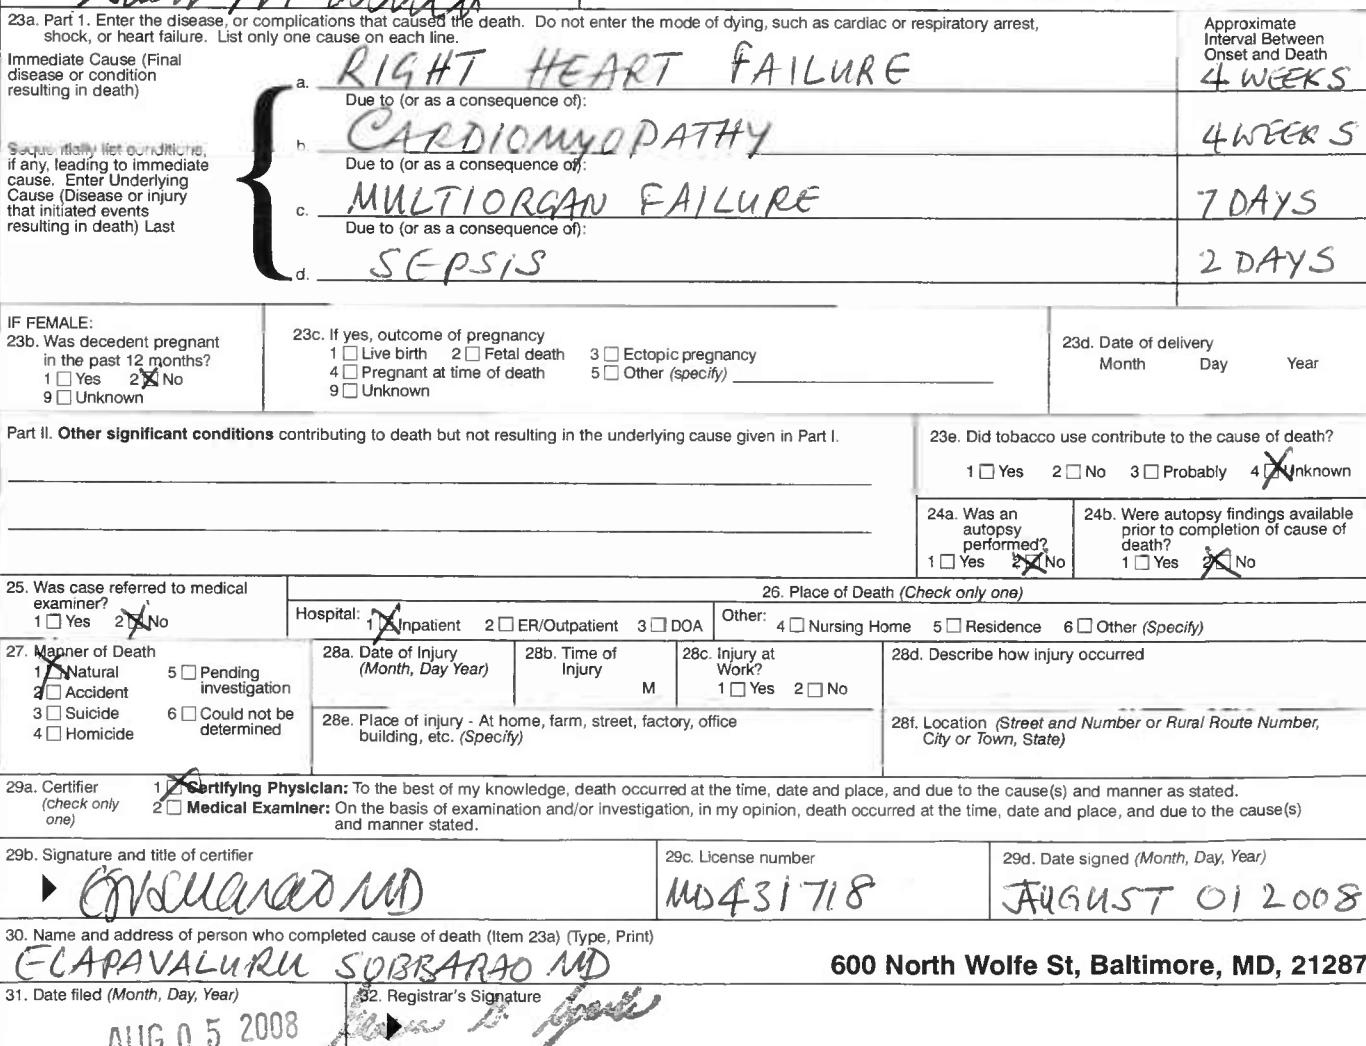 23a. Part 1. Enter the disease, or complications that caused the death. Do not enter the mode of dying, such as cardiac or respiratory arrest,
shock, or heart failure. List only one cause on each line.
Approximate
Interval Between
Onset and Death
Immediate Cause (Final
disease or condition
resulting in death)
a. RIGHT HEART FAILURE 4 WEEKS
Due to (or as a consequence of):
Sequentially list conditions,
if any, leading to immediate
cause. Enter Underlying
Cause (Disease or injury
that initiated events
resulting in death) Last
b. CARDIOMYOPATHY 4 WEEKS
Due to (or as a consequence of):
c. MULTIORGAN FAILURE 7 DAYS
Due to (or as a consequence of):
d. SEPSIS 2 DAYS
IF FEMALE:
23b. Was decedent pregnant
in the past 12 months?
1 Yes 2 No
9 Unknown
23c. If yes, outcome of pregnancy
1 Live birth 2 Fetal death 3 Ectopic pregnancy
4 Pregnant at time of death 5 Other (specify)
9 Unknown
23d. Date of delivery
Month Day Year
Part II. Other significant conditions contributing to death but not resulting in the underlying cause given in Part I.
23e. Did tobacco use contribute to the cause of death?
1 Yes 2 No 3 Probably 4 Unknown
24a. Was an
autopsy
performed?
1 Yes 2 No
24b. Were autopsy findings available
prior to completion of cause of
death?
1 Yes 2 No
25. Was case referred to medical
examiner?
1 Yes 2 No
26. Place of Death (Check only one)
Hospital: 1 Inpatient 2 ER/Outpatient 3 DOA
Other: 4 Nursing Home 5 Residence 6 Other (Specify)
27. Manner of Death
1 Natural 5 Pending
investigation
2 Accident
3 Suicide 6 Could not be
determined
4 Homicide
28a. Date of Injury
(Month, Day Year)
28b. Time of
Injury
M
28c. Injury at
Work?
1 Yes 2 No
28d. Describe how injury occurred
28e. Place of injury - At home, farm, street, factory, office
building, etc. (Specify)
28f. Location (Street and Number or Rural Route Number,
City or Town, State)
29a. Certifier
(check only
one)
1 Certifying Physician: To the best of my knowledge, death occurred at the time, date and place, and due to the cause(s) and manner as stated.
2 Medical Examiner: On the basis of examination and/or investigation, in my opinion, death occurred at the time, date and place, and due to the cause(s)
and manner stated.
29b. Signature and title of certifier
MD
29c. License number
MD431718
29d. Date signed (Month, Day, Year)
AUGUST 01 2008
30. Name and address of person who completed cause of death (Item 23a) (Type, Print)
ELAPAVALURU SUBBARAO MD 600 North Wolfe St, Baltimore, MD, 21287
31. Date filed (Month, Day, Year)
AUG 05 2008
32. Registrar's Signature